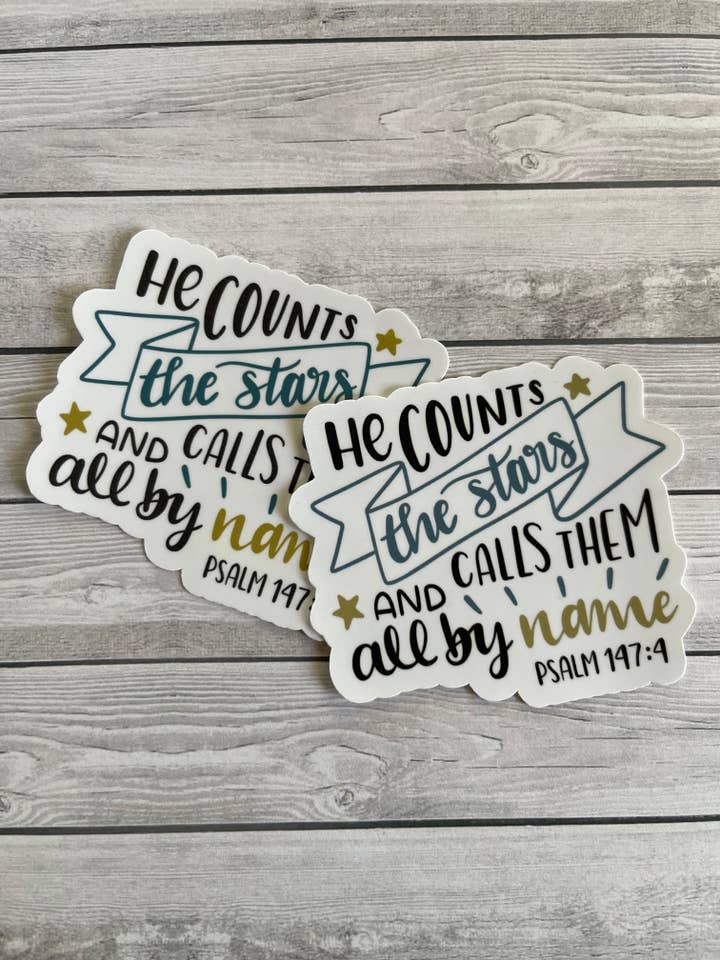 He COUNTS
the stars
AND CALLS T
all by nam
PSALM 147:
He COUNTS
the stars
AND CALLS THEM
all by name
PSALM 147:4